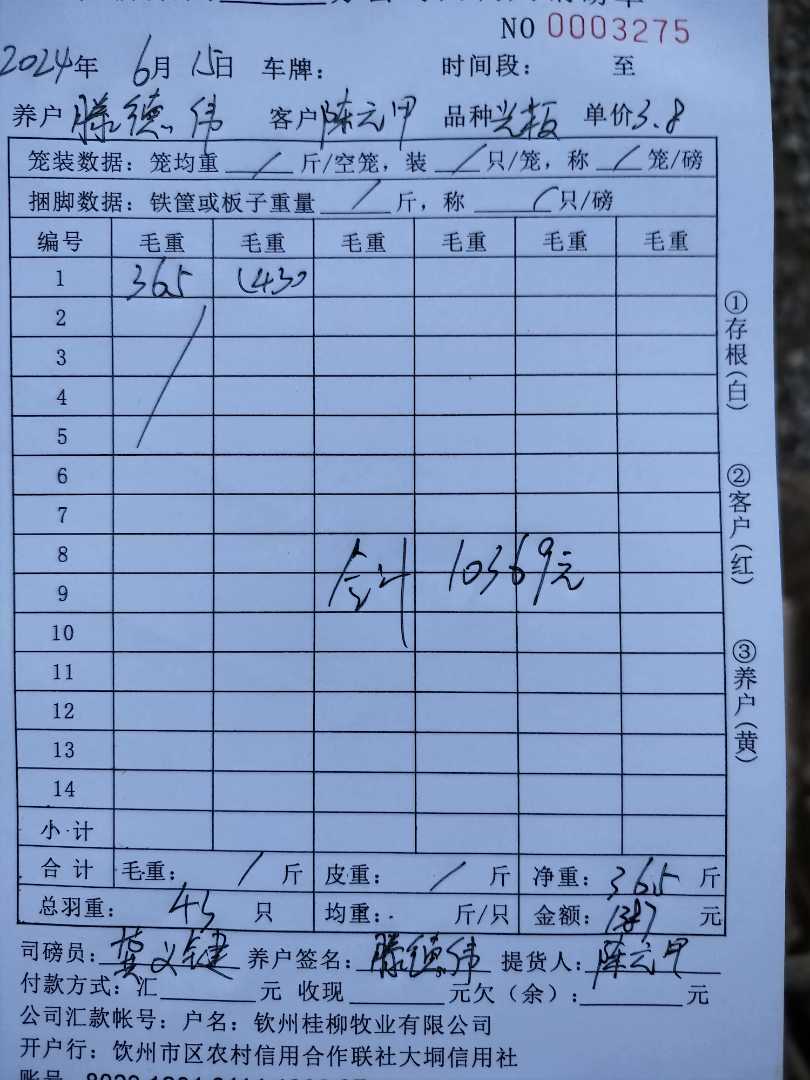 NO 0003275
2024年 6月 15日 车牌： 时间段： 至
养户 滕德伟 客户 陈元甲 品种 光板 单价 3.8
笼装数据：笼均重 / 斤/空笼，装 / 只/笼，称 / 笼/磅
捆脚数据：铁筐或板子重量 / 斤，称 / 只/磅
编号 毛重 毛重 毛重 毛重 毛重 毛重
1 365 1430
2
3
4
5
6
7
8
合计 10369元
9
10
11
12
13
14
小计
合计 毛重： / 斤 皮重： / 斤 净重：365 斤
总羽重： 43 只 均重： 斤/只 金额：1387 元
司磅员：黄义键 养户签名：滕德伟 提货人：陈元甲
付款方式：汇 元 收现 元欠（余）： 元
公司汇款帐号：户名：钦州桂柳牧业有限公司
开户行：钦州市区农村信用合作联社大垌信用社
①存根（白）
②客户（红）
③养户（黄）